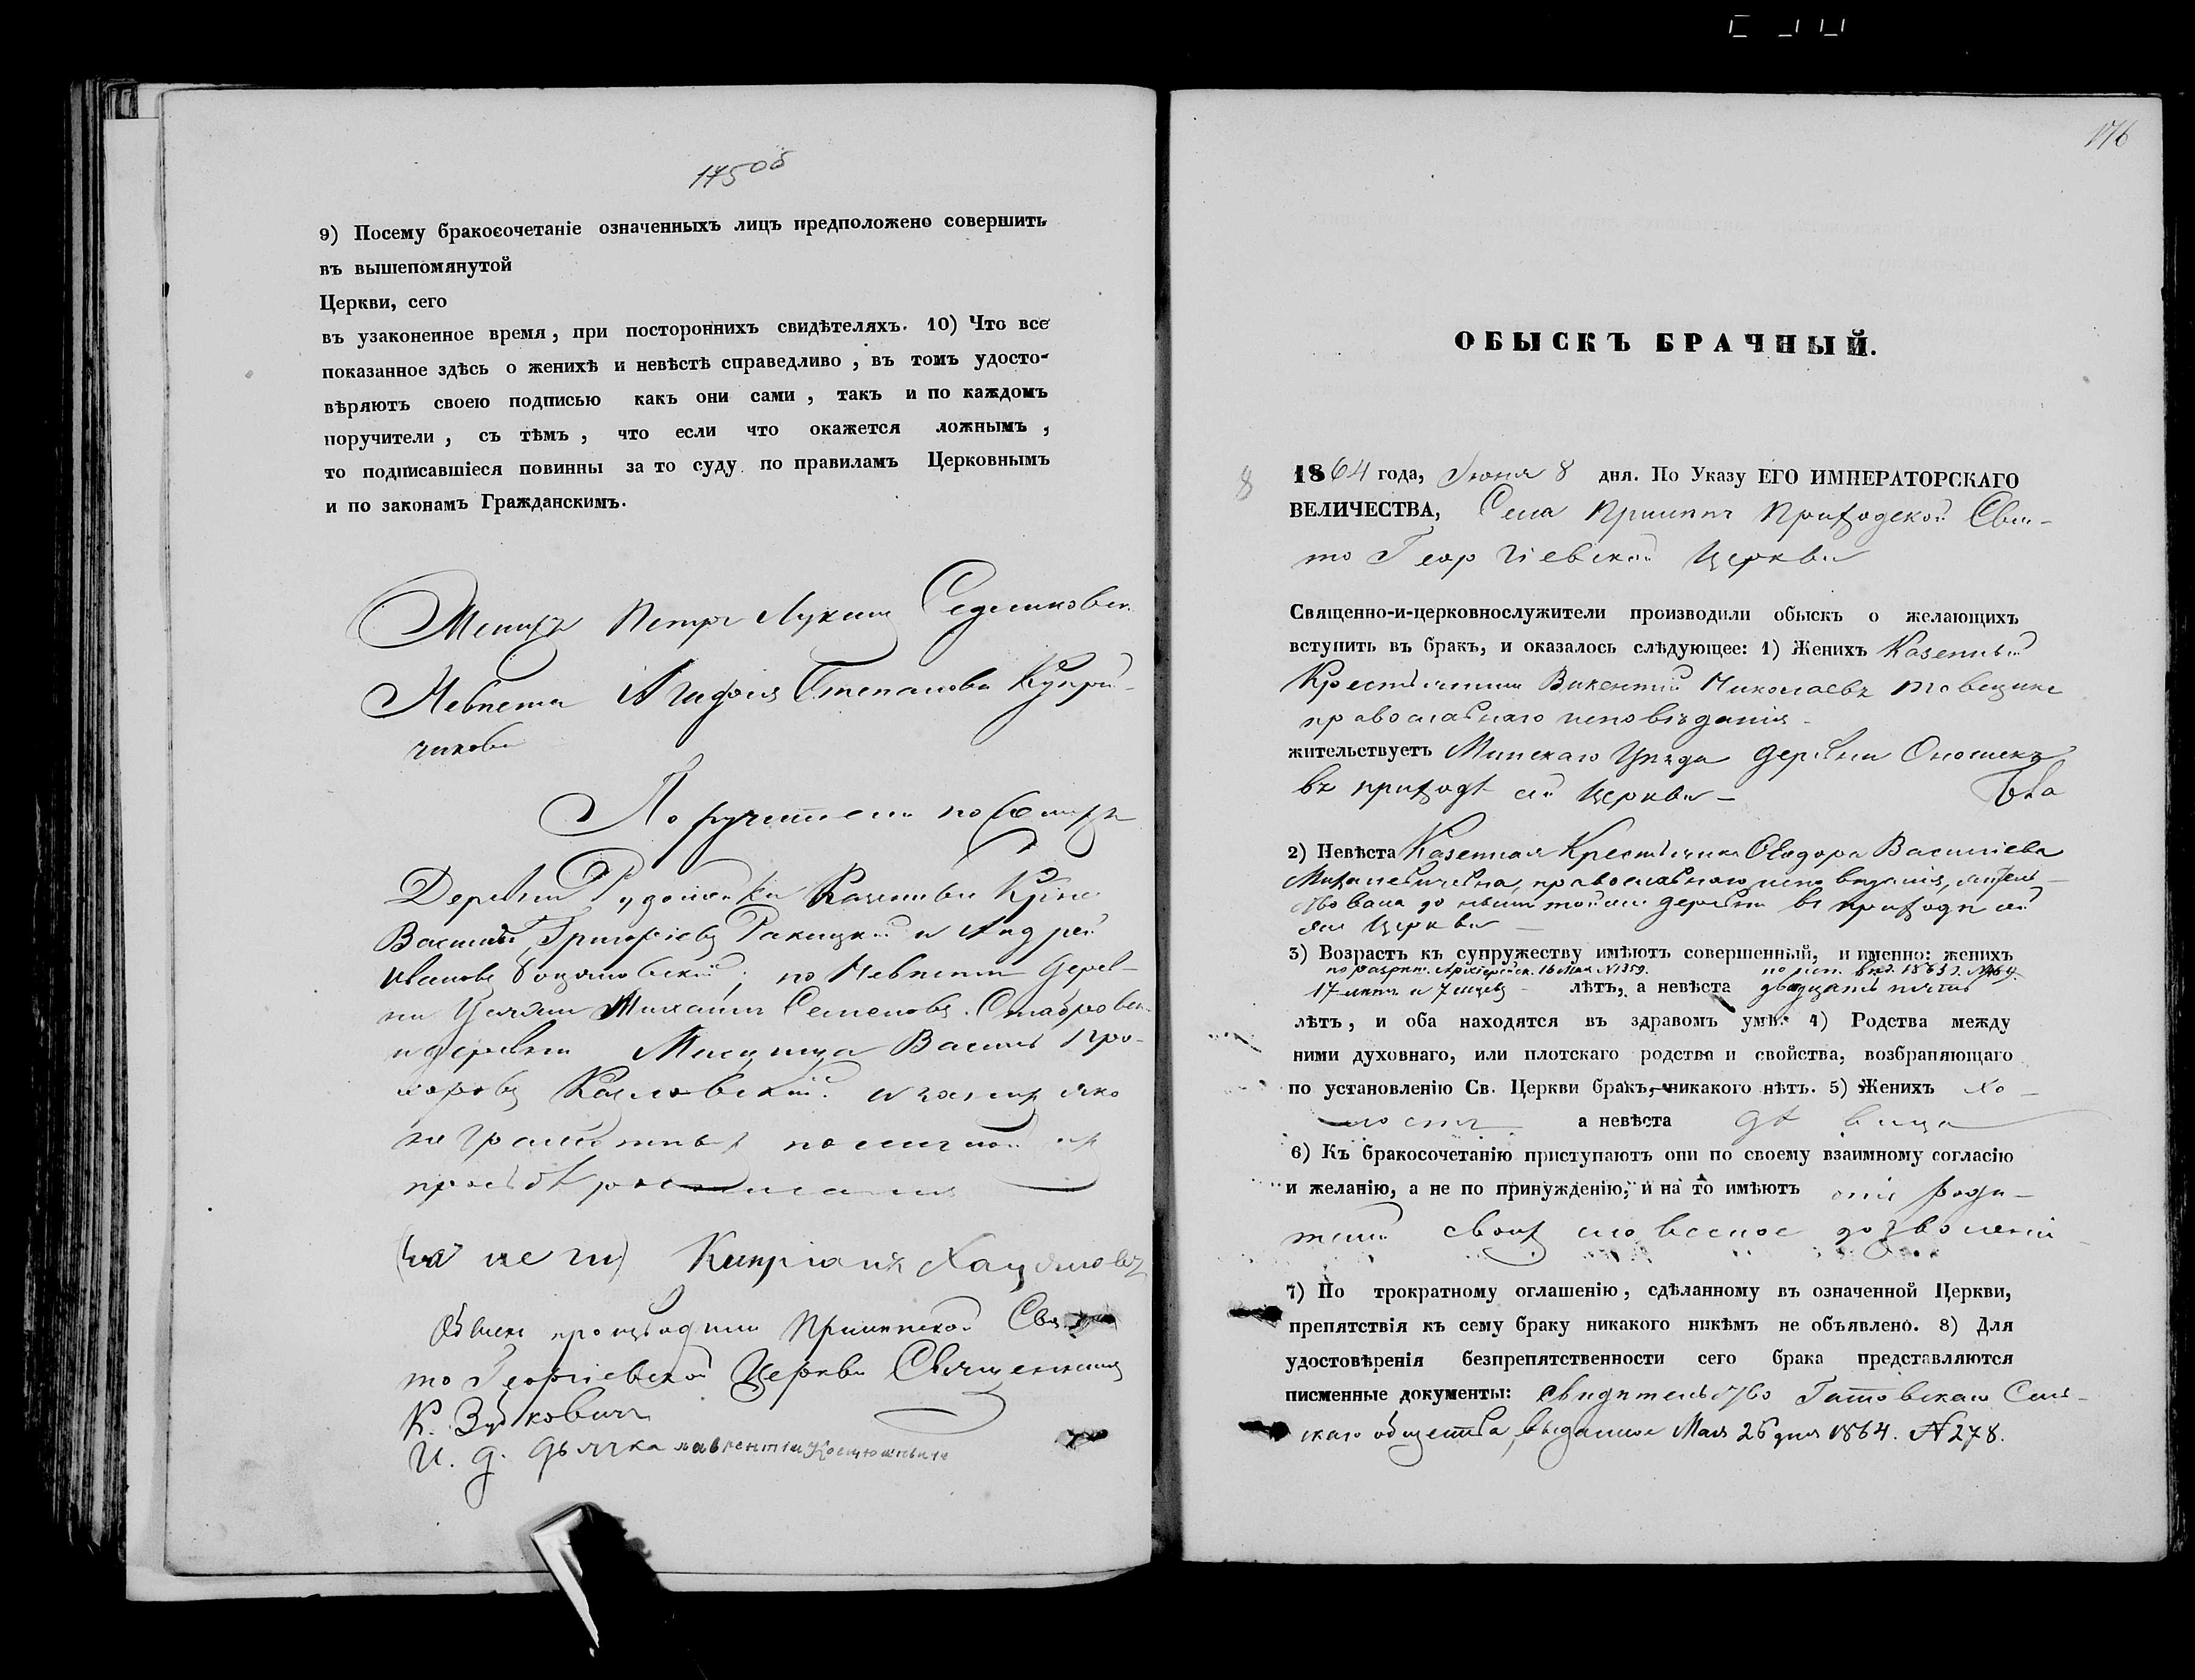 175 об
9) Посему бракосочетаніе означенныхъ лицъ предположено совершить
въ вышепомянутой
Церкви, сего
въ узаконенное время, при постороннихъ свидѣтеляхъ. 10) Что все
показанное здѣсь о женихѣ и невѣстѣ справедливо, въ томъ удосто-
вѣряютъ своею подписью какъ они сами, такъ и по каждомъ
поручители, съ тѣмъ, что если что окажется ложнымъ,
то подписавшіеся повинны за то суду по правиламъ Церковнымъ
и по законамъ Гражданскимъ.
Женихъ Петръ Лукинъ
Невѣста Агафія Степанова
Поручители по Женихѣ
Деревни
Василій Григорьевъ Ракицкій и Андрей
Ивановъ по Невѣстѣ дерев-
ни Михаилъ Семеновъ
и деревни Василь Про-
хоровъ Козловскій а за нихъ яко
неграмотныхъ по личной ихъ
просьбѣ росписался
Кипріанъ
Обыскъ производили Прилепской Свя-
то Георгіевской Церкви Священникъ
К. Зубковичъ
И. д. дьячка Лаврентій
176
ОБЫСКЪ БРАЧНЫЙ.
8 1864 года, Июня 8 дня. По Указу ЕГО ИМПЕРАТОРСКАГО
ВЕЛИЧЕСТВА, Села Прилепъ Приходской Свя-
то Георгіевской Церкви
Священно-и-церковнослужители производили обыскъ о желающихъ
вступить въ бракъ, и оказалось слѣдующее: 1) Женихъ Казенный
Крестьянинъ Викентій Николаевъ
православнаго исповѣданія
жительствуетъ Минскаго Уѣзда деревни
въ приходѣ сей Церкви
2) Невѣста Казенная Крестьянка Ѳеодора Василіева
православнаго исповѣданія, житель-
ствовала до нынѣ той же деревни въ приходѣ сей
же Церкви
3) Возрастъ къ супружеству имѣютъ совершенный, и именно: женихъ
по разрѣш. Архіерейск. 16 Мая №1359. по исп. вѣд. 1863 г.
17 лѣтъ и 7 мцевъ лѣтъ, а невѣста двадцать пять
лѣтъ, и оба находятся въ здравомъ умѣ. 4) Родства между
ними духовнаго, или плотскаго родства и свойства, возбраняющаго
по установленію Св. Церкви бракъ, никакого нѣтъ. 5) Женихъ хо-
лостъ а невѣста дѣвица
6) Къ бракосочетанію приступаютъ они по своему взаимному согласію
и желанію, а не по принужденію, и на то имѣютъ они роди-
телей своихъ словесное дозволеніе
7) По трократному оглашенію, сдѣланному въ означенной Церкви,
препятствія къ сему браку никакого никѣмъ не объявлено. 8) Для
удостовѣренія безпрепятственности сего брака представляются
писменные документы: свидѣтельство Гатовскаго Сель-
скаго общества, выданное Мая 26 дня 1864. №278.